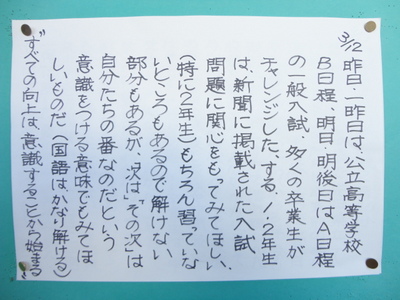 3/12 昨日・一昨日は、公立高等学校
B日程、明日・明後日はA日程
の一般入試。多くの卒業生が
チャレンジした、する。1・2年生
は、新聞に掲載された入試
問題に関心をもってみてほしい。
(特に2年生)もちろん習っていな
いところもあるので解けない
部分もあるが、「次は」「その次」は
自分たちの番なのだという
意識をつける意味でもみてほ
しいものだ(国語はかなり解ける)
"すべての向上は、意識することから始まる"